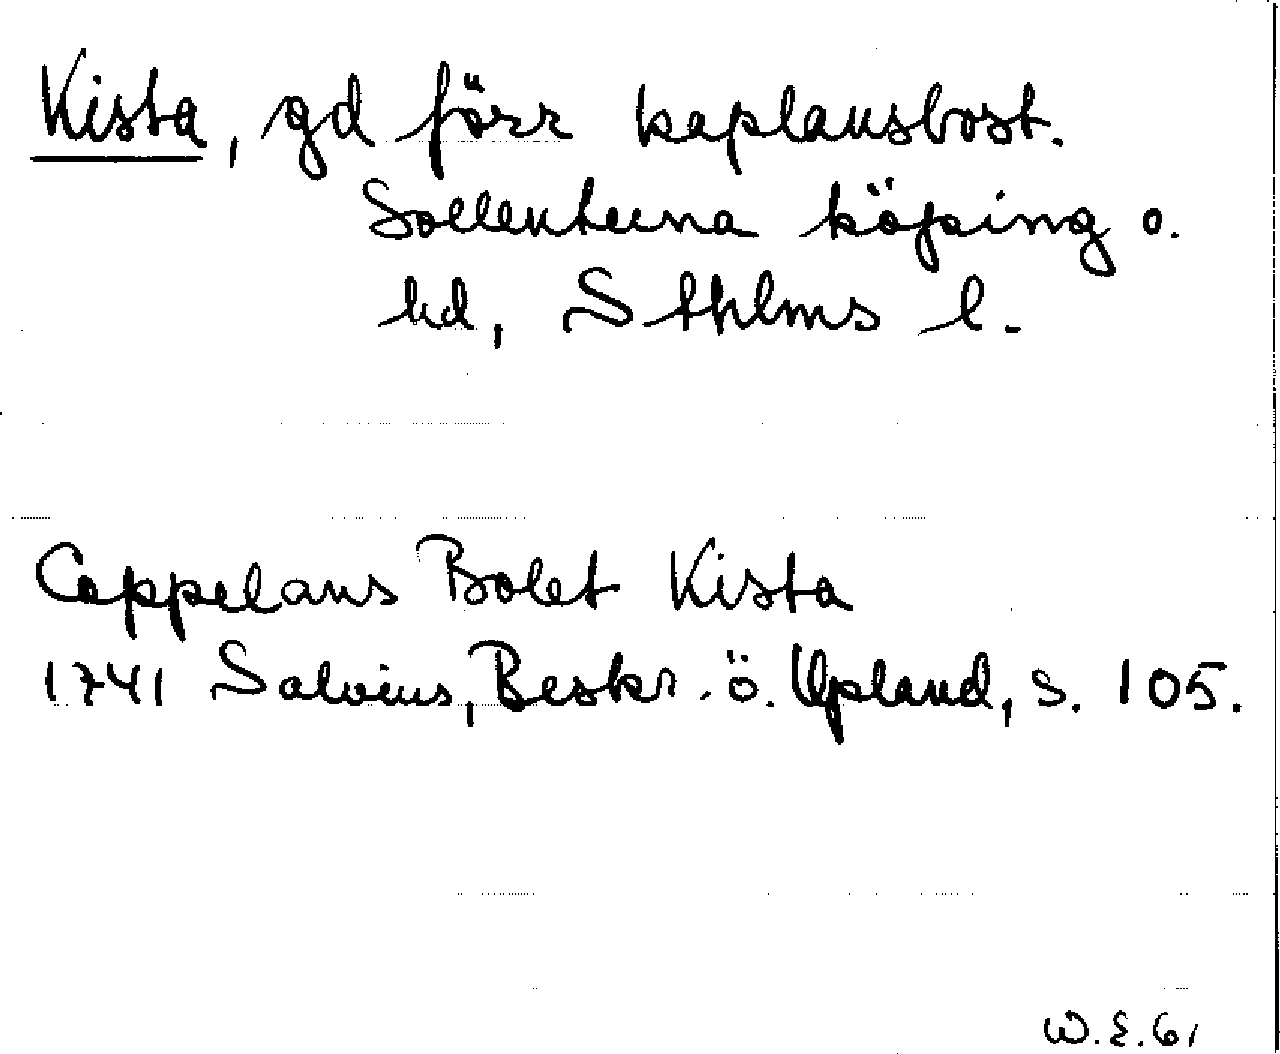 Kista, gd förr kaplansbost.
Sollentuna köping o.
hd, Sthlms l.
Cappelans Bolet Kista
1741 Salvius, Beskr. ö. Upland, s. 105.
W.E.61